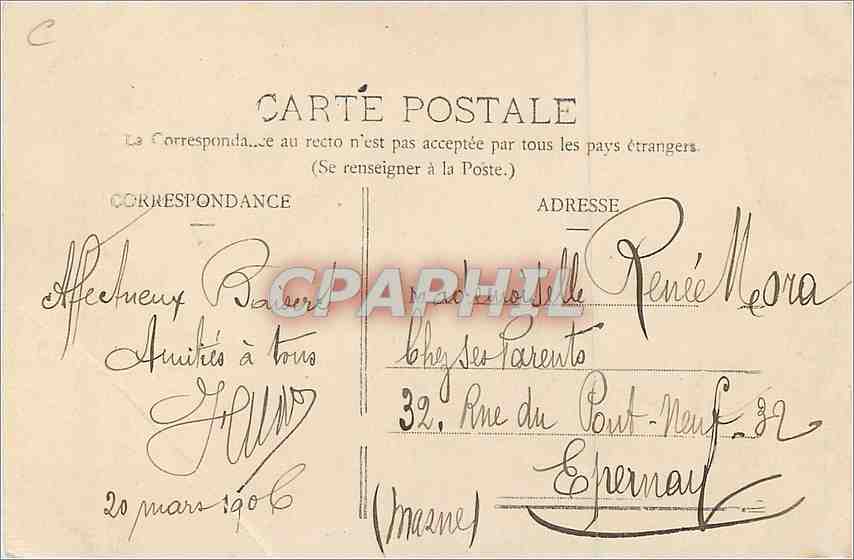 C
CARTE POSTALE
La Correspondance au recto n'est pas acceptée par tous les pays étrangers.
(Se renseigner à la Poste.)
CORRESPONDANCE
Affectueux Baisers
Amitiés à tous
20 mars 1906
ADRESSE
Mademoiselle Renée Mora
Chez ses Parents
32. Rue du Pont-Neuf. 32
Epernay
(Marne)
CPAPHIL